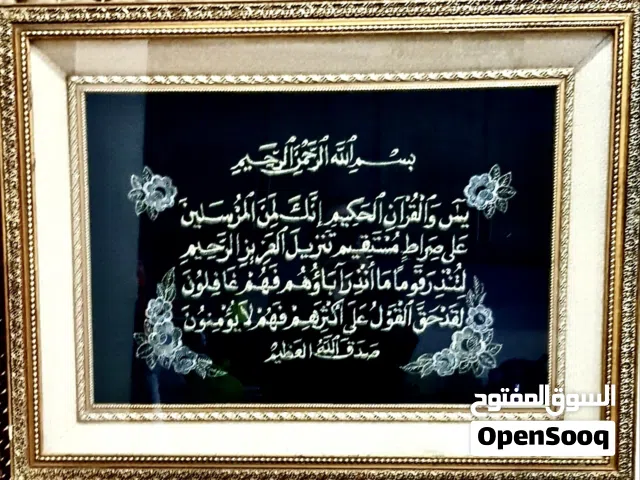 بسم الله الرحمن الرحيم
يس والقرآن الحكيم إنك لمن المرسلين
على صراط مستقيم تنزيل العزيز الرحيم
لتنذر قوما ما أنذر آباؤهم فهم غافلون
لقد حق القول على أكثرهم فهم لا يؤمنون
صدق الله العظيم
السوق المفتوح
OpenSooq